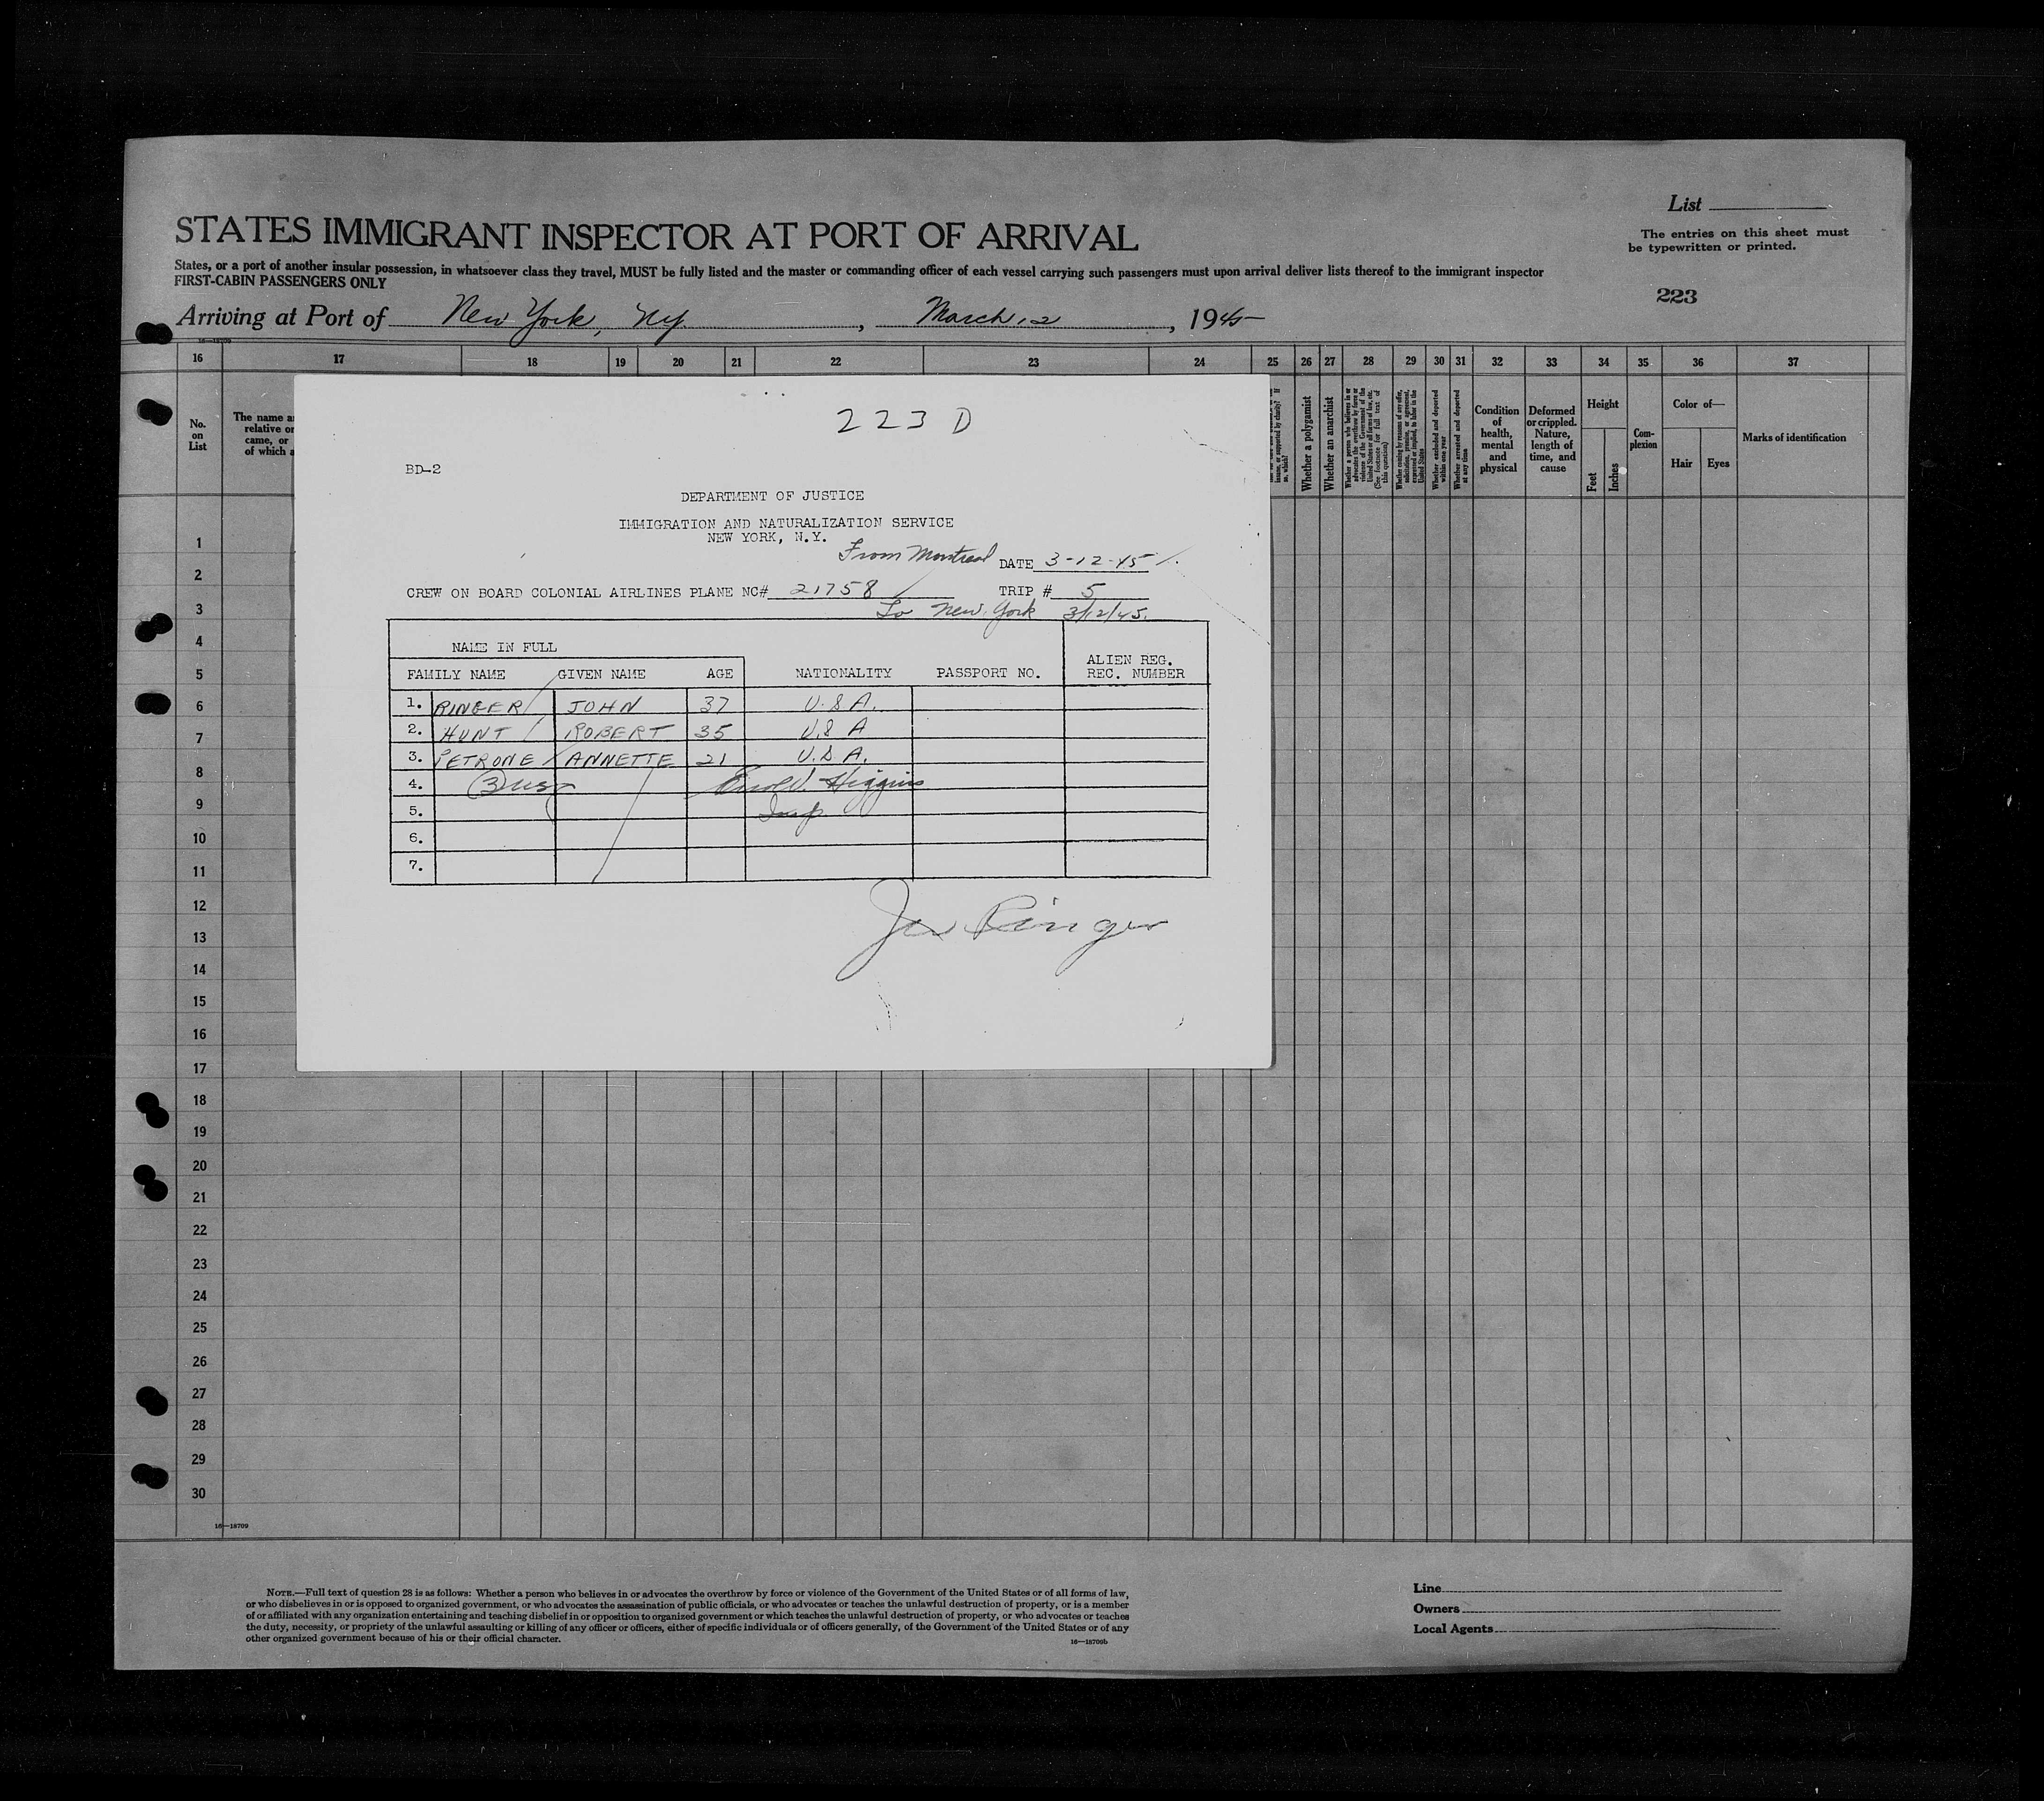 List
STATES IMMIGRANT INSPECTOR AT PORT OF ARRIVAL
The entries on this sheet must
be typewritten or printed.
States, or a port of another insular possession, in whatsoever class they travel, MUST be fully listed and the master or commanding officer of each vessel carrying such passengers must upon arrival deliver lists thereof to the immigrant inspector
FIRST-CABIN PASSENGERS ONLY
223
Arriving at Port of New York, NY. , March 12 , 1945
16—18709
16 17 18 19 20 21 22 23 24 25 26 27 28 29 30 31 32 33 34 35 36 37
No.
on
List
The name a
relative or
came, or
of which a
Whether a polygamist
Whether an anarchist
Whether a person who believes in or
advocates the overthrow by force or
violence of the Government of the
United States or all forms of law, etc.
(See footnote for full text of
this question)
Whether coming by reasons of any offer,
solicitation, promise, or agreement,
expressed or implied, to labor in the
United States
Whether excluded and deported
within one year
Whether arrested and deported
at any time
Condition
of
health,
mental
and
physical
Deformed
or crippled.
Nature,
length of
time, and
cause
Height
Feet
Inches
Com-
plexion
Color of—
Hair Eyes
Marks of identification
223 D
BD-2
DEPARTMENT OF JUSTICE
IMMIGRATION AND NATURALIZATION SERVICE
NEW YORK, N.Y.
From Montreal DATE 3-12-45
CREW ON BOARD COLONIAL AIRLINES PLANE NC# 21758 TRIP # 5
To New York 3/12/45.
NAME IN FULL
FAMILY NAME GIVEN NAME AGE NATIONALITY PASSPORT NO. ALIEN REG.
REC. NUMBER
1. RINGER JOHN 37 U.S A.
2. HUNT ROBERT 35 U.S A
3. PETRONE ANNETTE 21 U.S.A.
4. 3 USC Errol V. Higgins
5. Insp.
6.
7.
Jn Ringer
1
2
3
4
5
6
7
8
9
10
11
12
13
14
15
16
17
18
19
20
21
22
23
24
25
26
27
28
29
30
16—18709
NOTE.—Full text of question 28 is as follows: Whether a person who believes in or advocates the overthrow by force or violence of the Government of the United States or of all forms of law,
or who disbelieves in or is opposed to organized government, or who advocates the assassination of public officials, or who advocates or teaches the unlawful destruction of property, or is a member
of or affiliated with any organization entertaining and teaching disbelief in or opposition to organized government or which teaches the unlawful destruction of property, or who advocates or teaches
the duty, necessity, or propriety of the unlawful assaulting or killing of any officer or officers, either of specific individuals or of officers generally, of the Government of the United States or of any
other organized government because of his or their official character.
16—18709b
Line
Owners
Local Agents